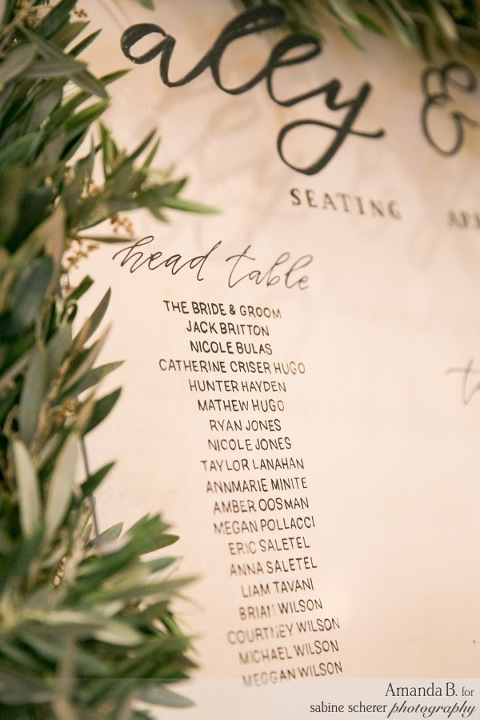 aley &
SEATING
head table
THE BRIDE & GROOM
JACK BRITTON
NICOLE BULAS
CATHERINE CRISER HUGO
HUNTER HAYDEN
MATHEW HUGO
RYAN JONES
NICOLE JONES
TAYLOR LANAHAN
ANNMARIE MINITE
AMBER OOSMAN
MEGAN POLLACCI
ERIC SALETEL
ANNA SALETEL
LIAM TAVANI
BRIAN WILSON
COURTNEY WILSON
MICHAEL WILSON
MEGGAN WILSON
Amanda B. for
sabine scherer photography